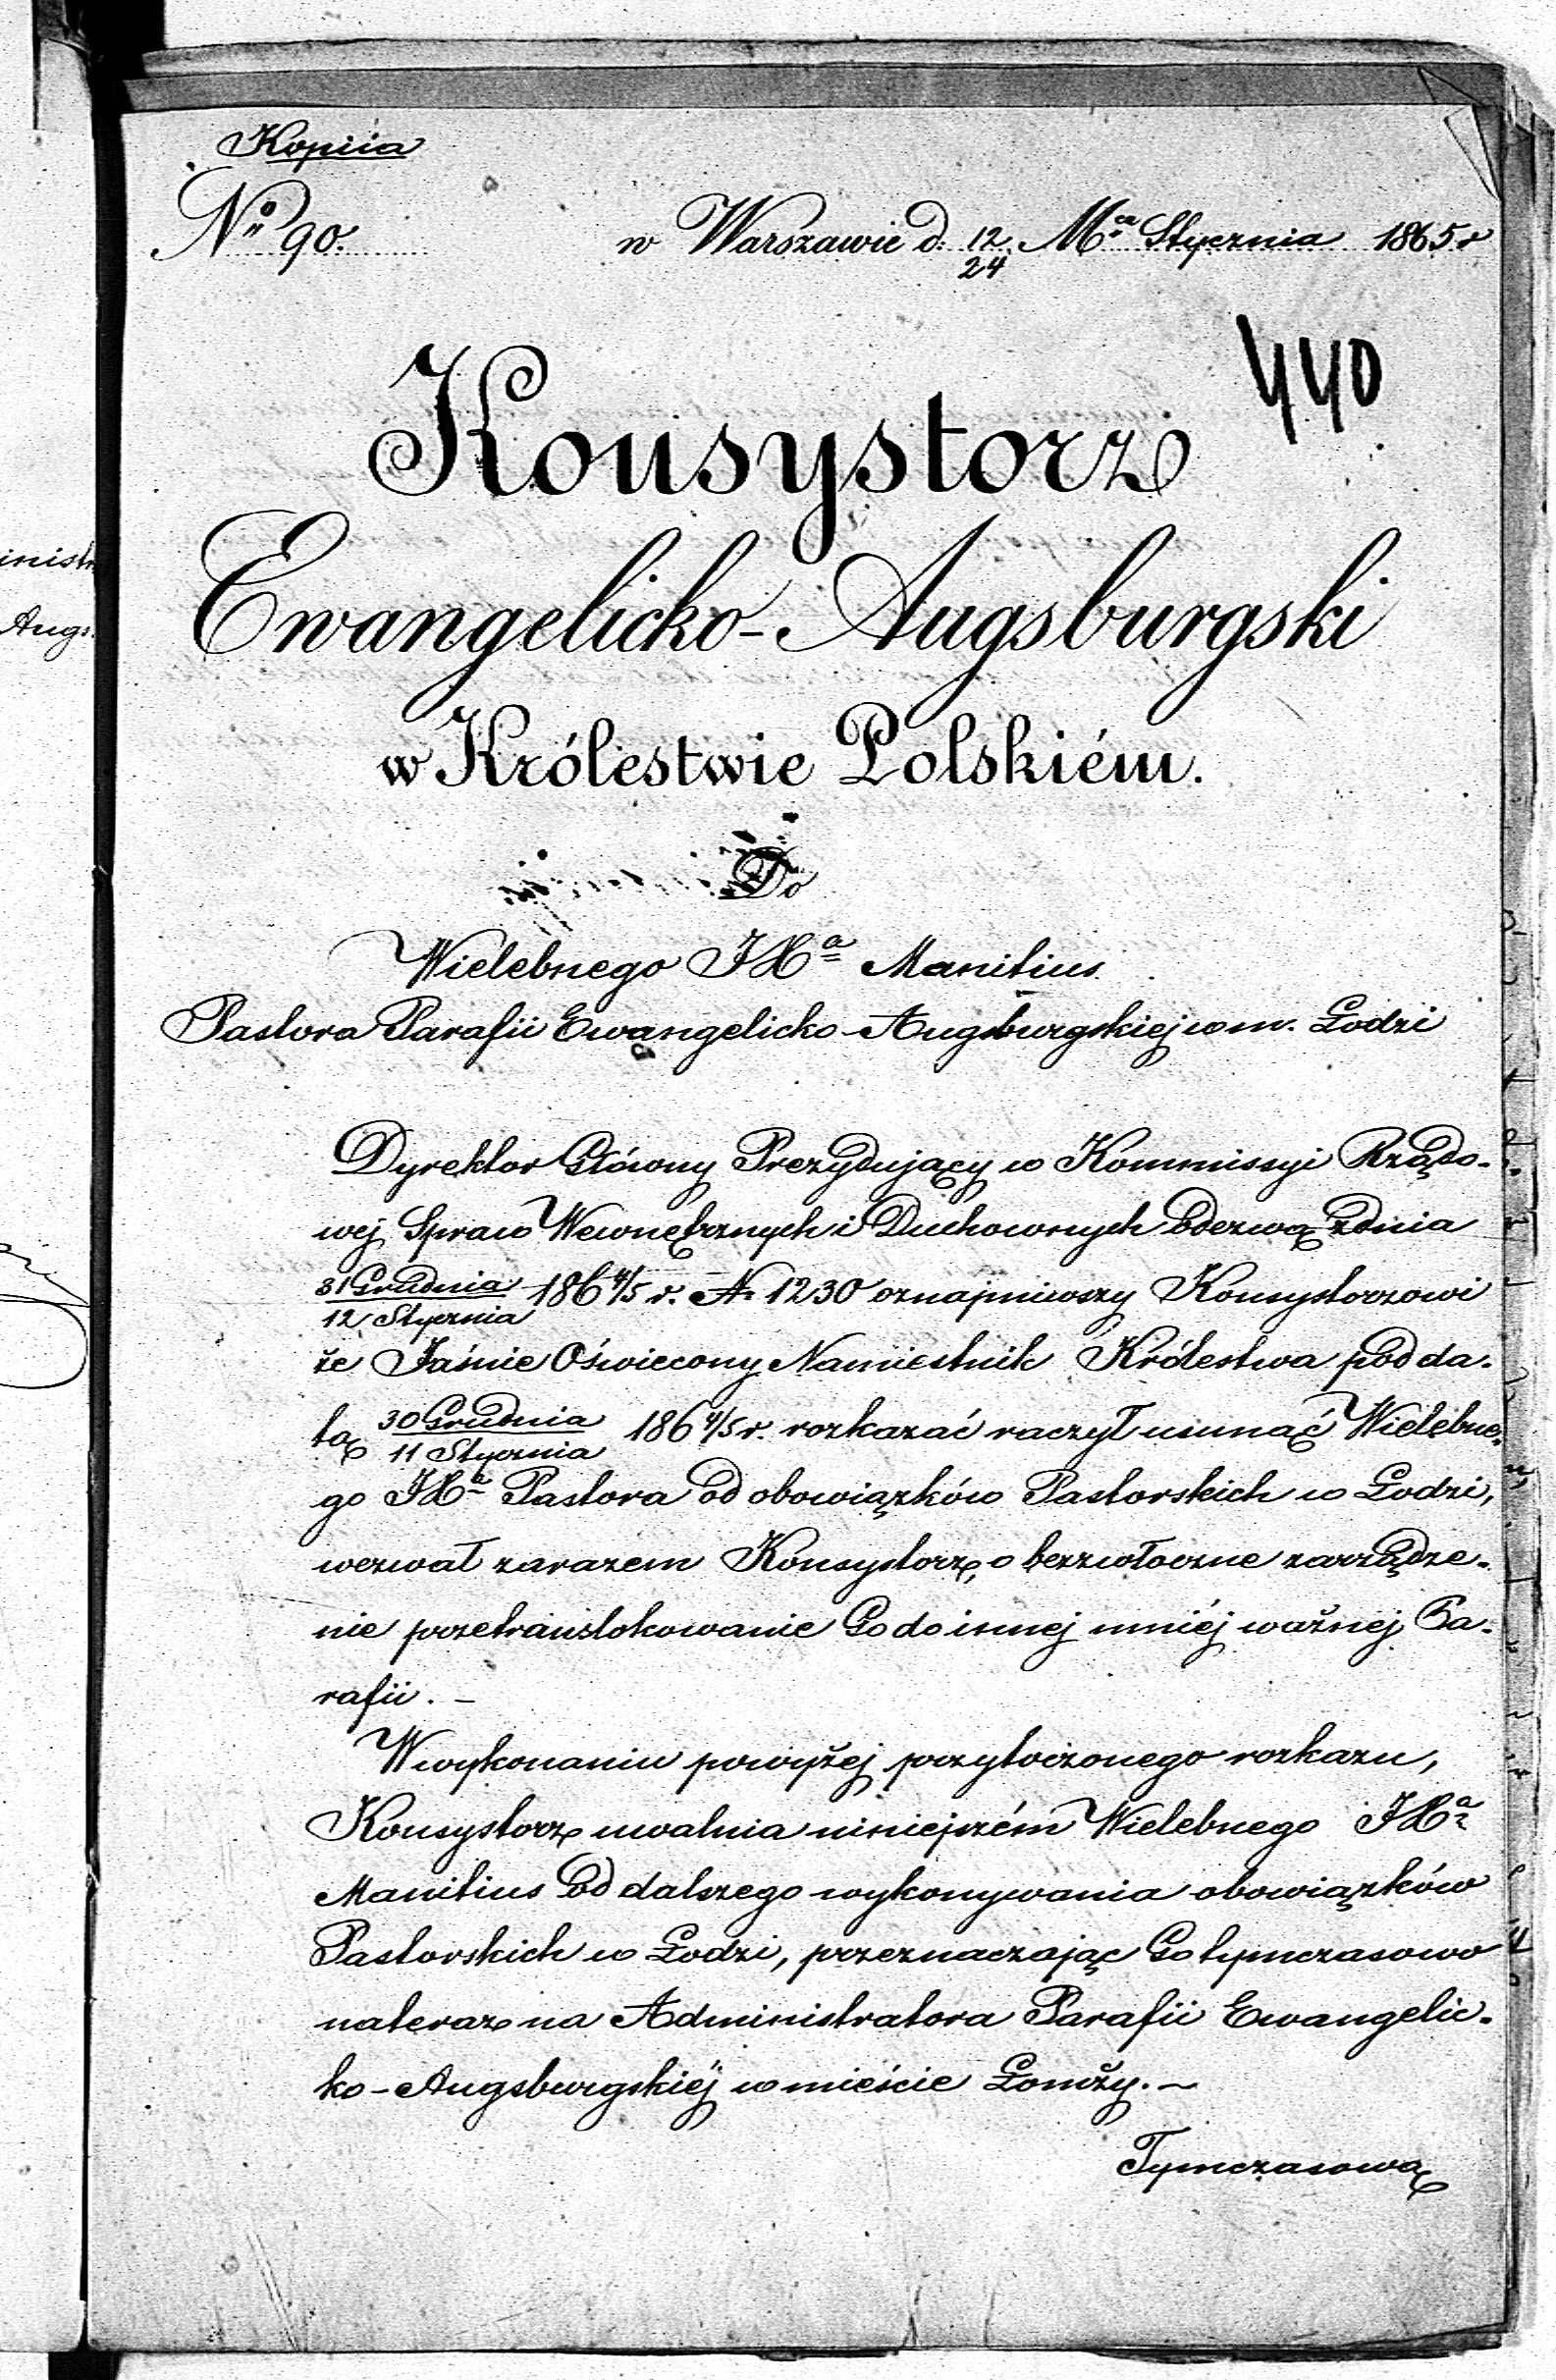 Kopiia
No 90. w Warszawie d. 12/24 Mca Stycznia 1865 r
440
Konsystorz
Ewangelicko-Augsburgski
w Królestwie Polskiém.
Do
Wielebnego JXa Manitius
Pastora Parafii Ewangelicko-Augsburgskiej w m. Łodzi
Dyrektor Główny Prezydujący w Kommissyi Rządo-
wej Spraw Wewnętrznych i Duchownych odezwą z dnia
31 Grudnia/12 Stycznia 1864/5 r. N. 1230 oznajmiwszy Konsystorzowi
że Jaśnie Oświecony Namiestnik Królestwa pod da-
tą 30 Grudnia/11 Stycznia 1864/5 r. rozkazać raczył usunąć Wielebne-
go JXa Pastora od obowiązków Pastorskich w Łodzi,
wezwał zarazem Konsystorz, o bezzwłoczne zarządze-
nie przetranslokowanie Go do innej mniéj ważnej Pa-
rafii. -
W wykonaniu powyżej przytoczonego rozkazu,
Konsystorz uwalnia niniejszém Wielebnego JXa
Manitius od dalszego wykonywania obowiązków
Pastorskich w Łodzi, przeznaczając Go tymczasowo
nateraz na Administratora Parafii Ewangelic-
ko-Augsburgskiéj w mieście Łomży. -
Tymczasową
inistr
Augs.